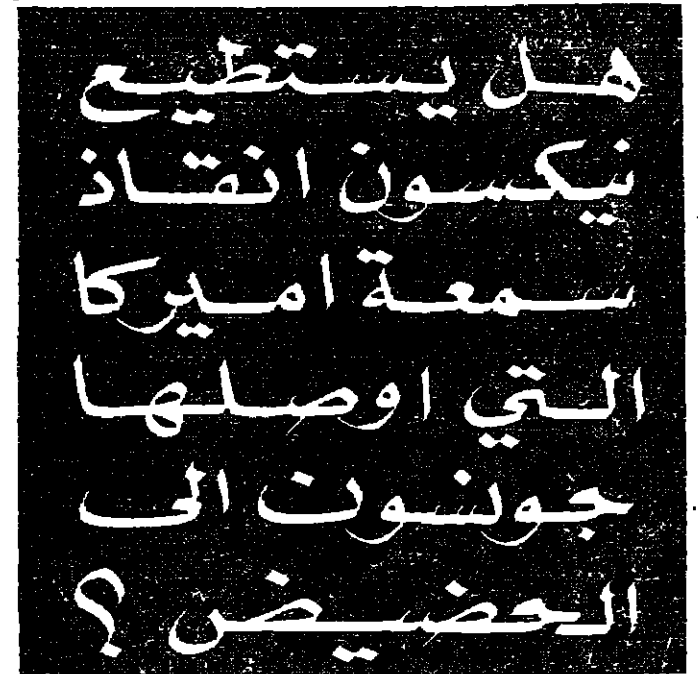 هل يستطيع
نيكسون انقاذ
سمعة اميركا
التي اوصلها
جونسون الى
الحضيض ؟